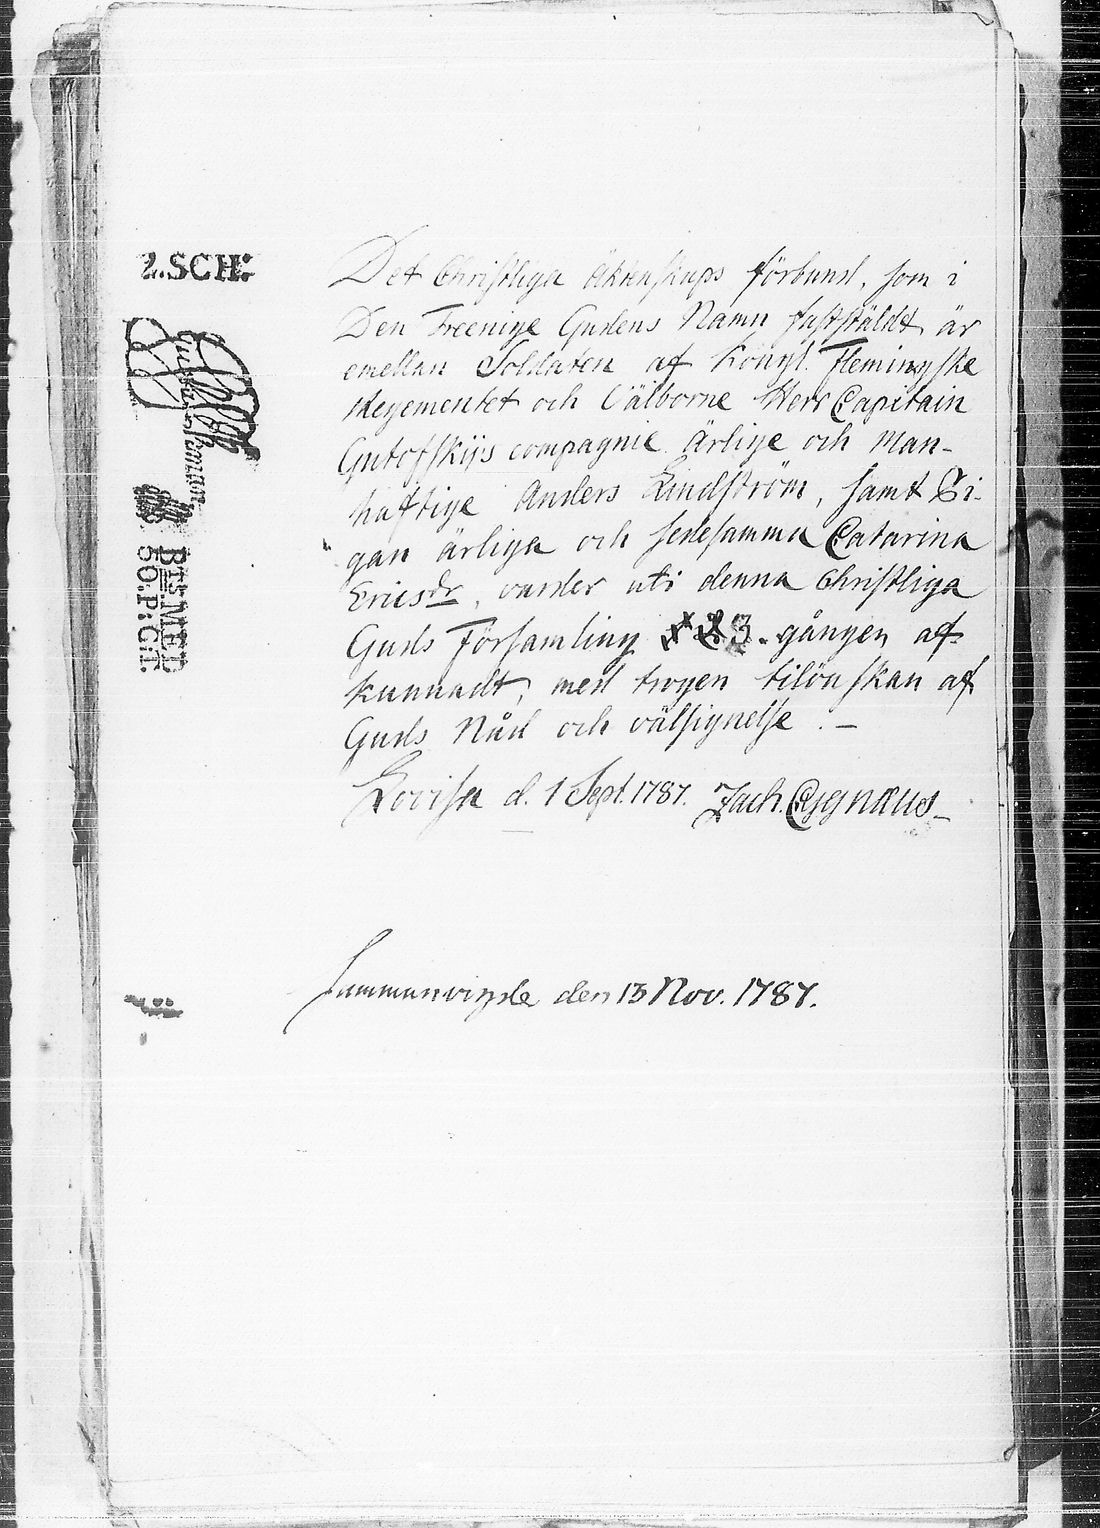 2.SCH:
BIS MED
50.P:C:T.
Det Christliga Äktenskaps förbund, som i
Den Treenige Gudens Namn faststäldt är
emellan Soldaten af Kongl. Flemingske
Regementet och Välborne Herr Capitain
Gutofskijs compagnie ärlige och Man-
haftige Anders Lindström, samt Pi-
gan ärliga och sedesamma Catarina
Ericsdr, varder uti denna Christliga
Guds Församling 3. gången af-
kunnadt, med trogen tilönskan af
Guds Nåd och välsignelse. –
Lovisa d. 1 Sept. 1787. Zach. Cygnæus
Sammanvigde den 13 Nov. 1787.